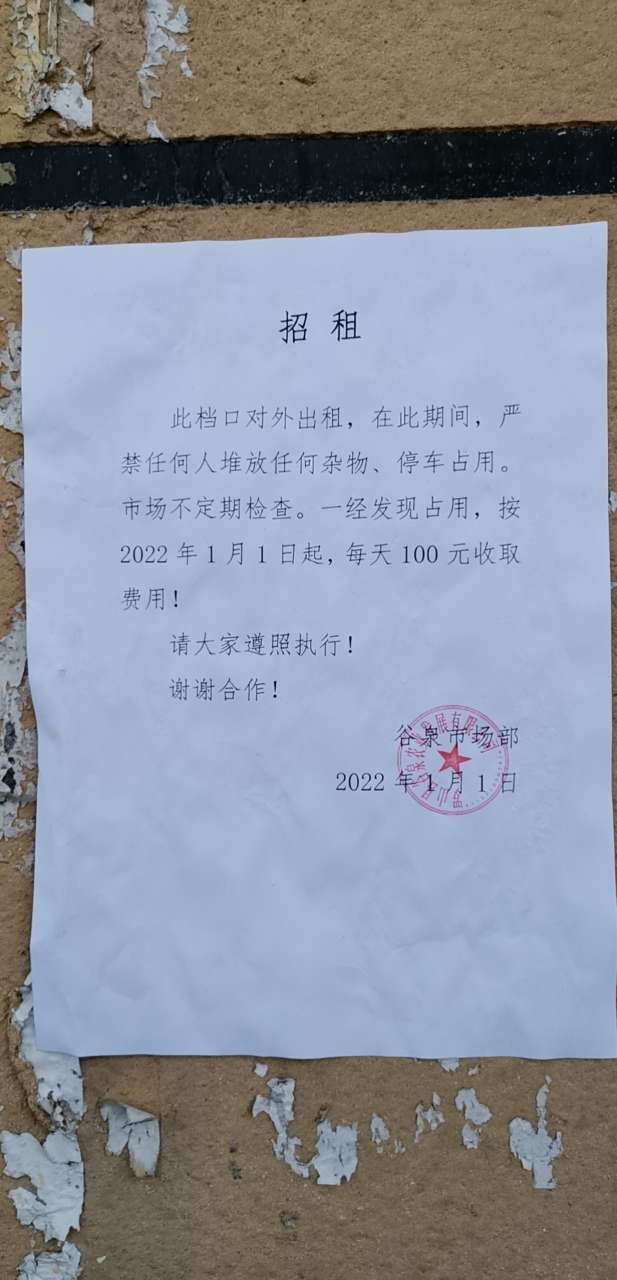 招租
此档口对外出租，在此期间，严
禁任何人堆放任何杂物、停车占用。
市场不定期检查。一经发现占用，按
2022年1月1日起，每天100元收取
费用！
请大家遵照执行！
谢谢合作！
谷泉市场部
2022年1月1日